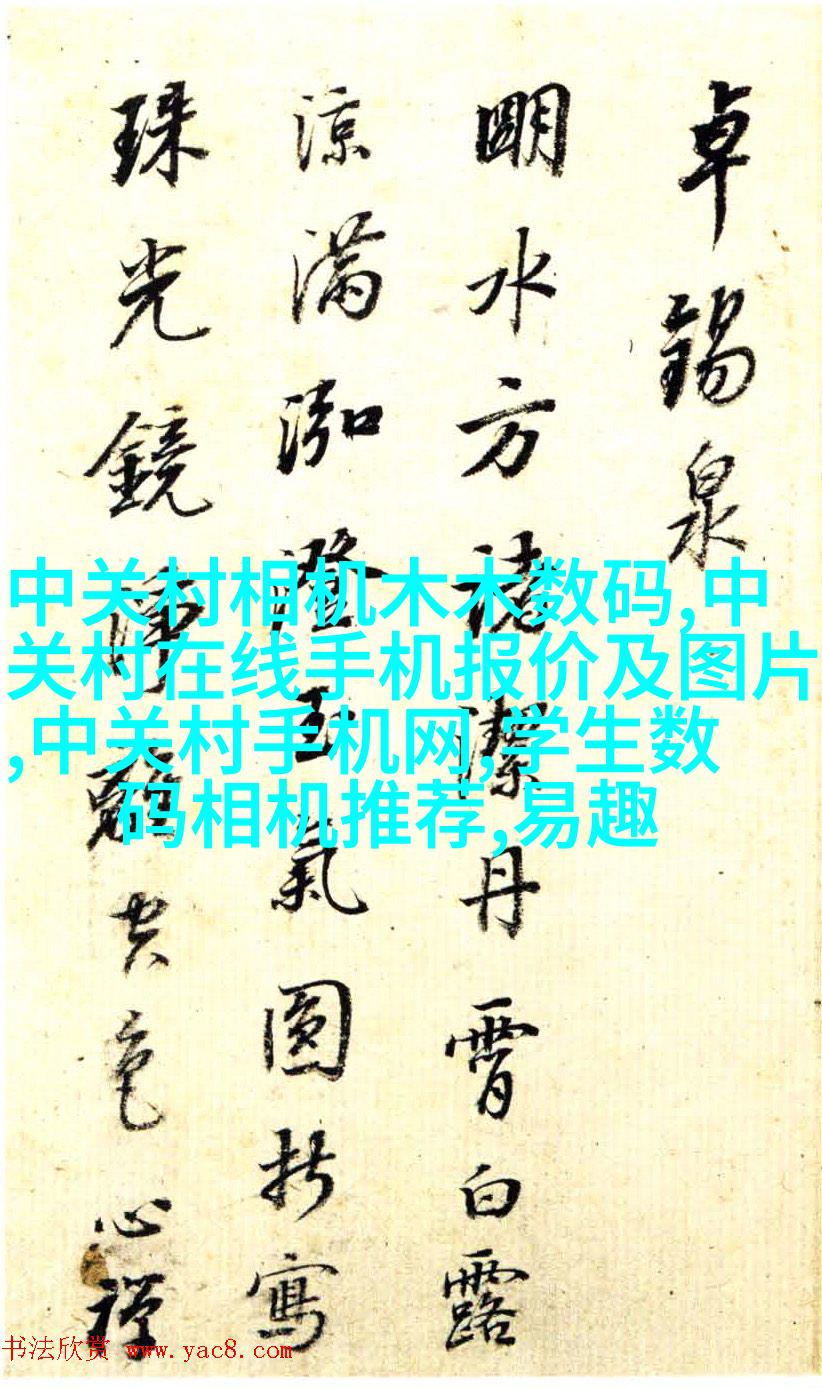 卓錫泉
明水方諸潔丹霄白露
涼滿泓澄玉氣圓折寫
珠光鏡淨空色心禪
中关村相机木木数码,中
关村在线手机报价及图片
,中关村手机网,学生数
码相机推荐,易趣
书法欣赏 www.yac8.com